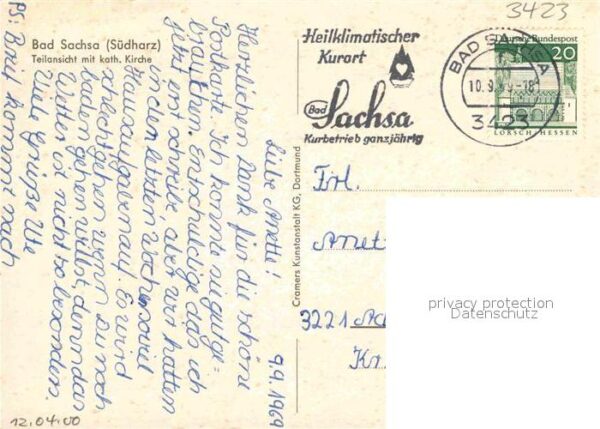 3423
Bad Sachsa (Südharz)
Teilansicht mit kath. Kirche
Heilklimatischer
Kurort
Bad
Sachsa
Kurbetrieb ganzjährig
BAD SACHSA
10.9.69-18
3423
Deutsche Bundespost
20
LORSCH/HESSEN
9.9.1969
Liebe Anette!
Herzlichen Dank für die schöne
Postkarte. Ich konnte sie gut ge=
brauchen. Entschuldige das ich
jetzt erst schreibe, aber wir hatten
in den letzten Wochen soviel
Hausaufgaben auf. Es wird
schlecht gehen wenn Du noch
baden gehen willst, denn das
Wetter ist nicht so besonders.
Viele Grüße Ute
PS: Brief kommt nach
Cramers Kunstanstalt KG, Dortmund
Frl.
Anet
3221 A
Kr.
privacy protection
Datenschutz
12.04.00